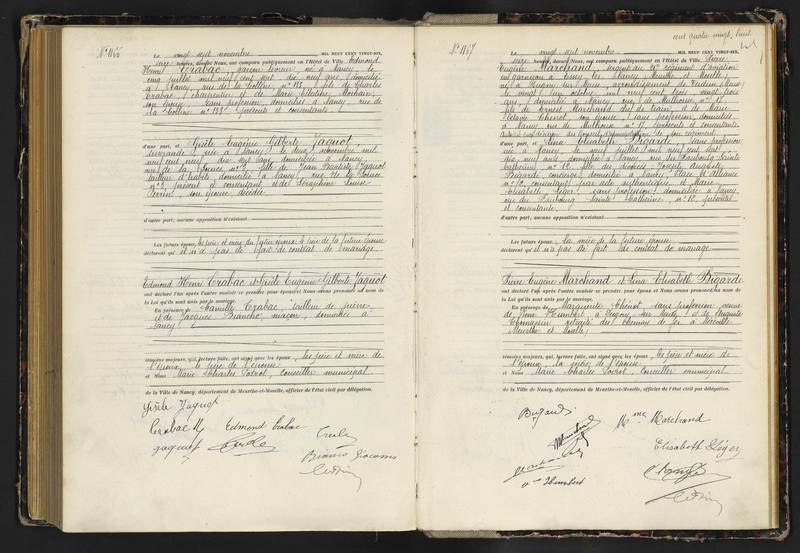 N° 1166
Le vingt sept novembre MIL NEUF CENT VINGT-SIX,
seize heures, devant Nous, ont comparu publiquement en l'Hôtel de Ville Edmond
Henri Crabac, garçon livreur, né à Nancy, le
cinq juillet mil neuf cent sept, dix neuf ans, domicilié
à Nancy, rue de la Colline, n° 113, fils de Charles
Crabac, charpentier et de Marie
son épouse, sans profession, domiciliés à Nancy, rue de
la Colline n° 113, présents et consentants
d'une part, et Gisèle Eugénie Gilberte Jaquot,
née à Nancy, le deux novembre mil
neuf cent neuf, dix sept ans, domiciliée à Nancy
rue de la n° 3, fille de Jean Baptiste Jaquot
tailleur d'habits, domicilié à Nancy, rue de la
n° 3, présent et consentant et de Séraphine Louise
son épouse, décédée
d'autre part; aucune opposition n'existant
Les futurs époux, les père et mère du futur époux, le père de la future épouse
déclarent qu'il n'a pas été fait de contrat de mariage.
Edmond Henri Crabac et Gisèle Eugénie Gilberte Jaquot
ont déclaré l'un après l'autre vouloir se prendre pour époux et Nous avons prononcé au nom de
la Loi qu'ils sont unis par le mariage.
En présence de Camille Crabac, tailleur de pierre
et de Jacques Biancho, maçon, domiciliés à
Nancy
témoins majeurs, qui, lecture faite, ont signé avec les époux, les père et mère de
l'époux, le père de l'épouse
et Nous Marie Charles conseiller municipal
de la Ville de Nancy, département de Meurthe-et-Moselle, officier de l'état civil par délégation.
Gisèle Jaquot
Crabac Edmond Crabac
Jaquot
Bianco Giacomo
cent quatre vingt huit
N° 1167
Le vingt sept novembre MIL NEUF CENT VINGT-SIX,
seize heures, devant Nous, ont comparu publiquement en l'Hôtel de Ville Pierre
Eugène Marchand, sergent au régiment d'aviation
en garnison à Essey les Nancy, Meurthe et Moselle,
né à Dugny sur Meuse, arrondissement de Verdun, Meuse
le vingt un octobre mil neuf cent trois, vingt trois
ans, domicilié à Nancy, rue de Mulhouse n° 17,
fils de Ernest Marchand, chef de train, et de Marie
Octavie Thenot, son épouse, sans profession, domiciliés
à Nancy rue de Mulhouse n° 17, présents et consentants
d'une part, et Lina Elisabeth Bigardi, sans profession
née à Nancy, le neuf juillet mil neuf cent sept
dix neuf ans, domiciliée à Nancy, rue du Faubourg Sainte
Catherine, n° 12, fille de Joseph Auguste
Bigardi, concierge, domicilié à Nancy, Place d'Alliance
n° 12, consentant par acte authentique et Marie
Elisabeth Léger, sans profession, domiciliée à Nancy,
rue du Faubourg Sainte Catherine, n° 12, présente
et consentante,
d'autre part; aucune opposition n'existant
Les futurs époux, la mère de la future épouse
déclarent qu'il n'a pas été fait de contrat de mariage.
Pierre Eugène Marchand et Lina Elisabeth Bigardi
ont déclaré l'un après l'autre vouloir se prendre pour époux et Nous avons prononcé au nom de
la Loi qu'ils sont unis par le mariage.
En présence de Marguerite Thenot, sans profession, veuve
de Humbert à Dugny, sur Meuse, et de Auguste
retraité des chemins de fer à
Meurthe et Moselle,
témoins majeurs, qui, lecture faite, ont signé avec les époux, les père et mère de
l'époux, la mère de l'épouse
et Nous Marie Charles conseiller municipal
de la Ville de Nancy, département de Meurthe-et-Moselle, officier de l'état civil par délégation.
Bigardi Mme Marchand
Elisabeth Léger
Humbert